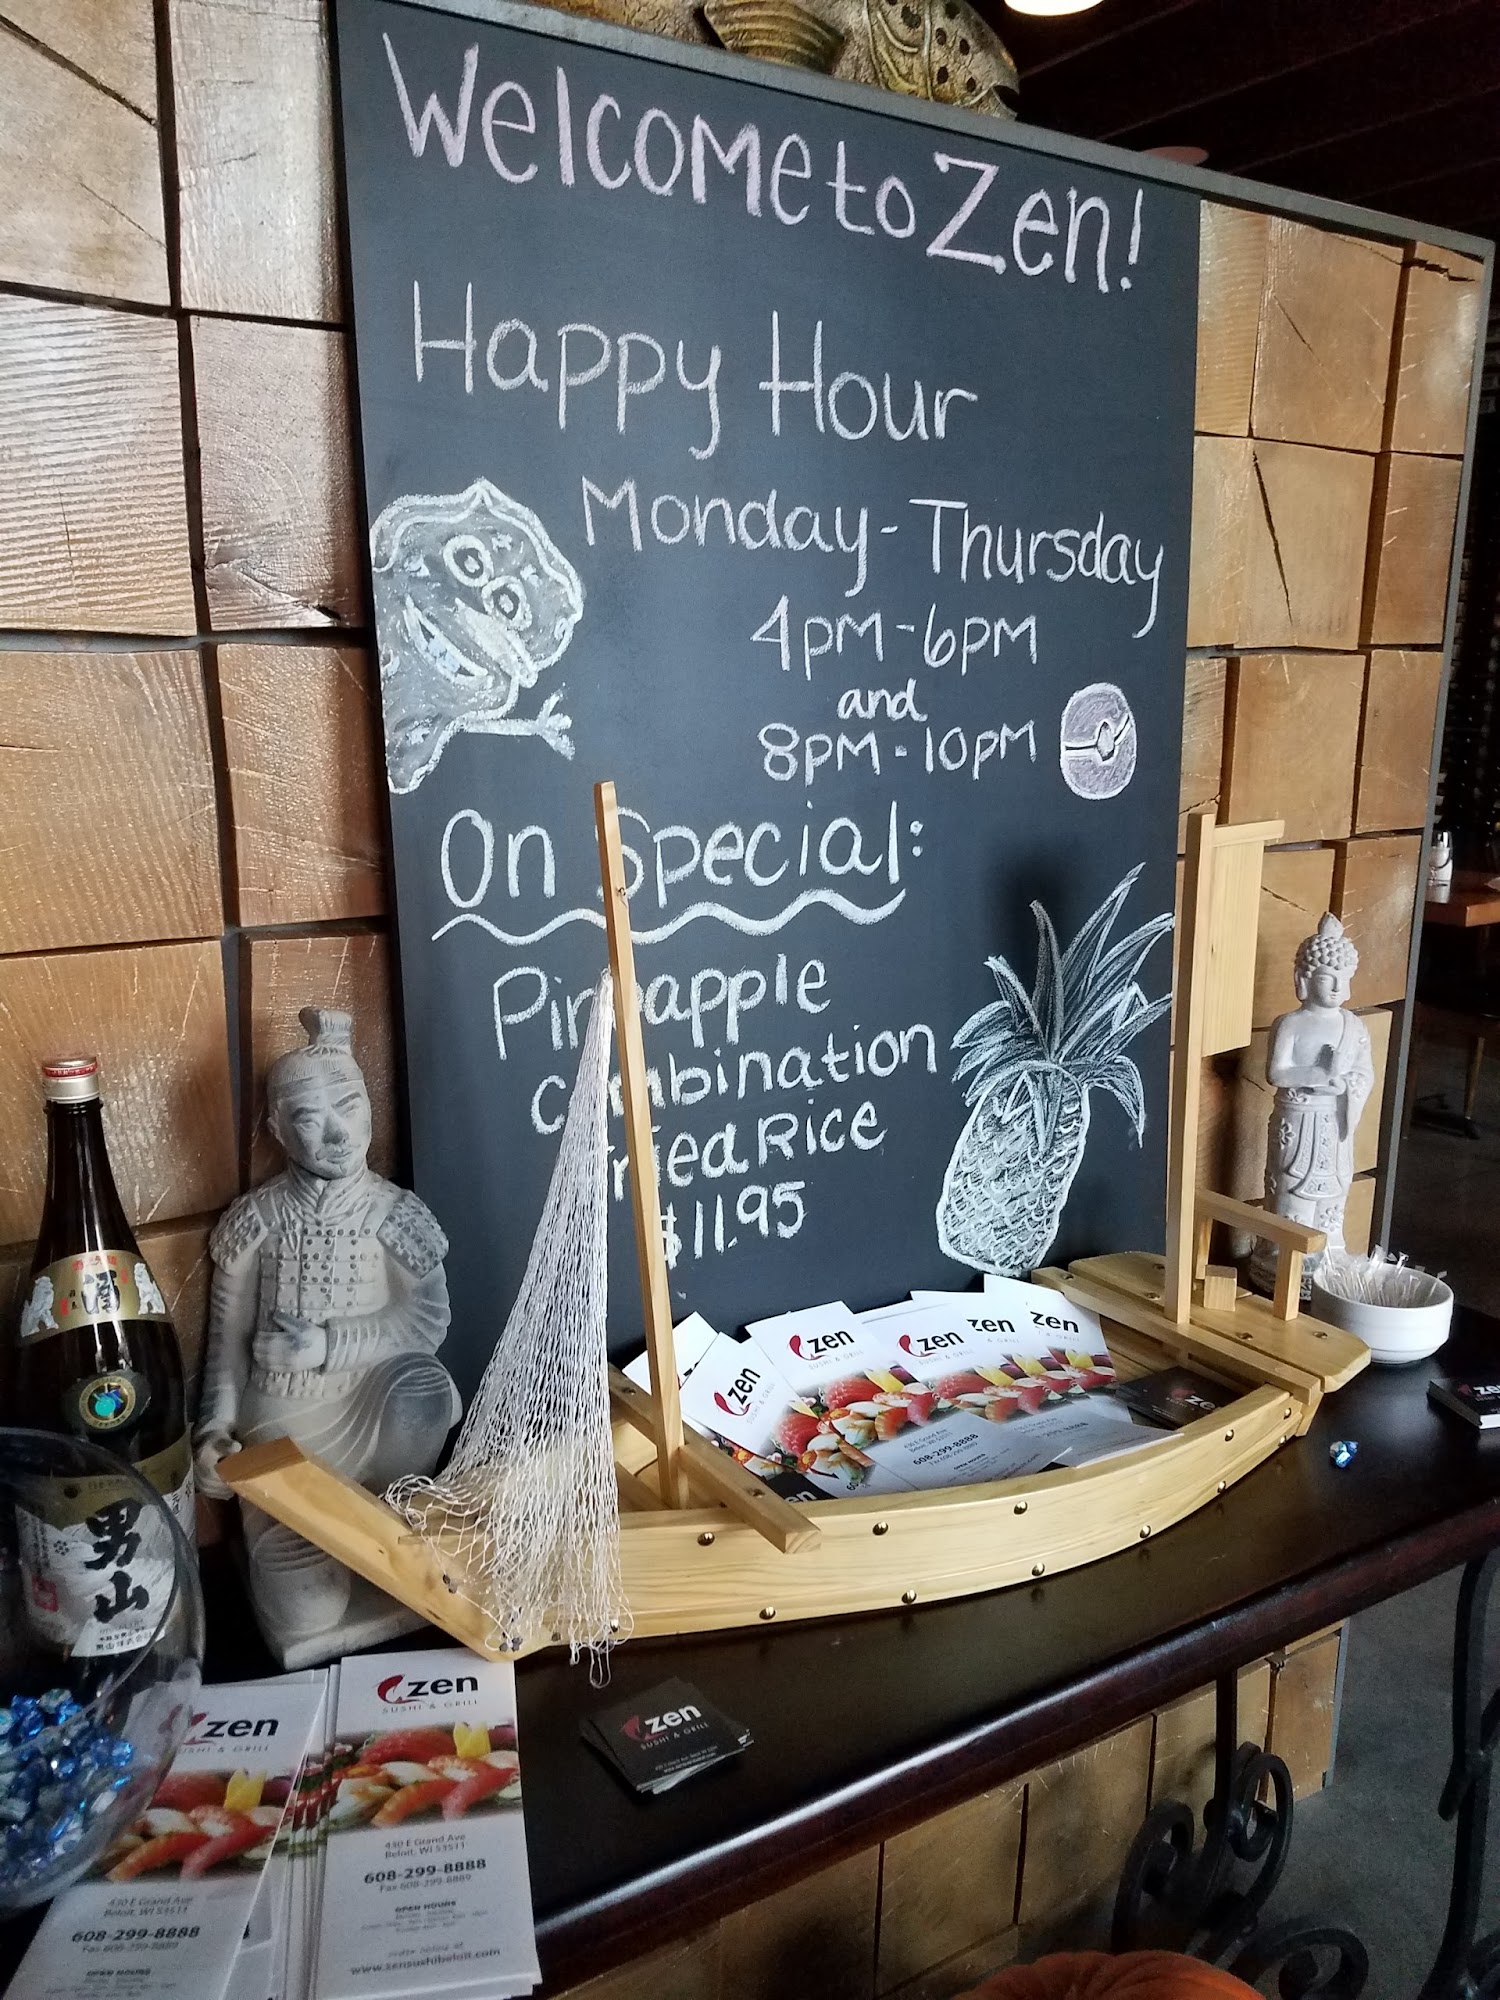 Welcome to Zen!
Happy Hour
Monday - Thursday
4PM - 6PM
and
8PM - 10PM
On Special:
Pineapple
Combination
Fried Rice
$11.95
zen
SUSHI & GRILL
zen
SUSHI & GRILL
zen
SUSHI & GRILL
zen
zen
608-299-8888
酒
男山
zen
SUSHI & GRILL
430 E Grand Ave
Beloit, WI 53511
608-299-8888
Fax 608-299-8889
OPEN HOURS
zen
SUSHI & GRILL
430 E Grand Ave
Beloit, WI 53511
608-299-8888
Fax 608-299-8889
OPEN HOURS
order online at
www.zensushibeloit.com
zen
SUSHI & GRILL